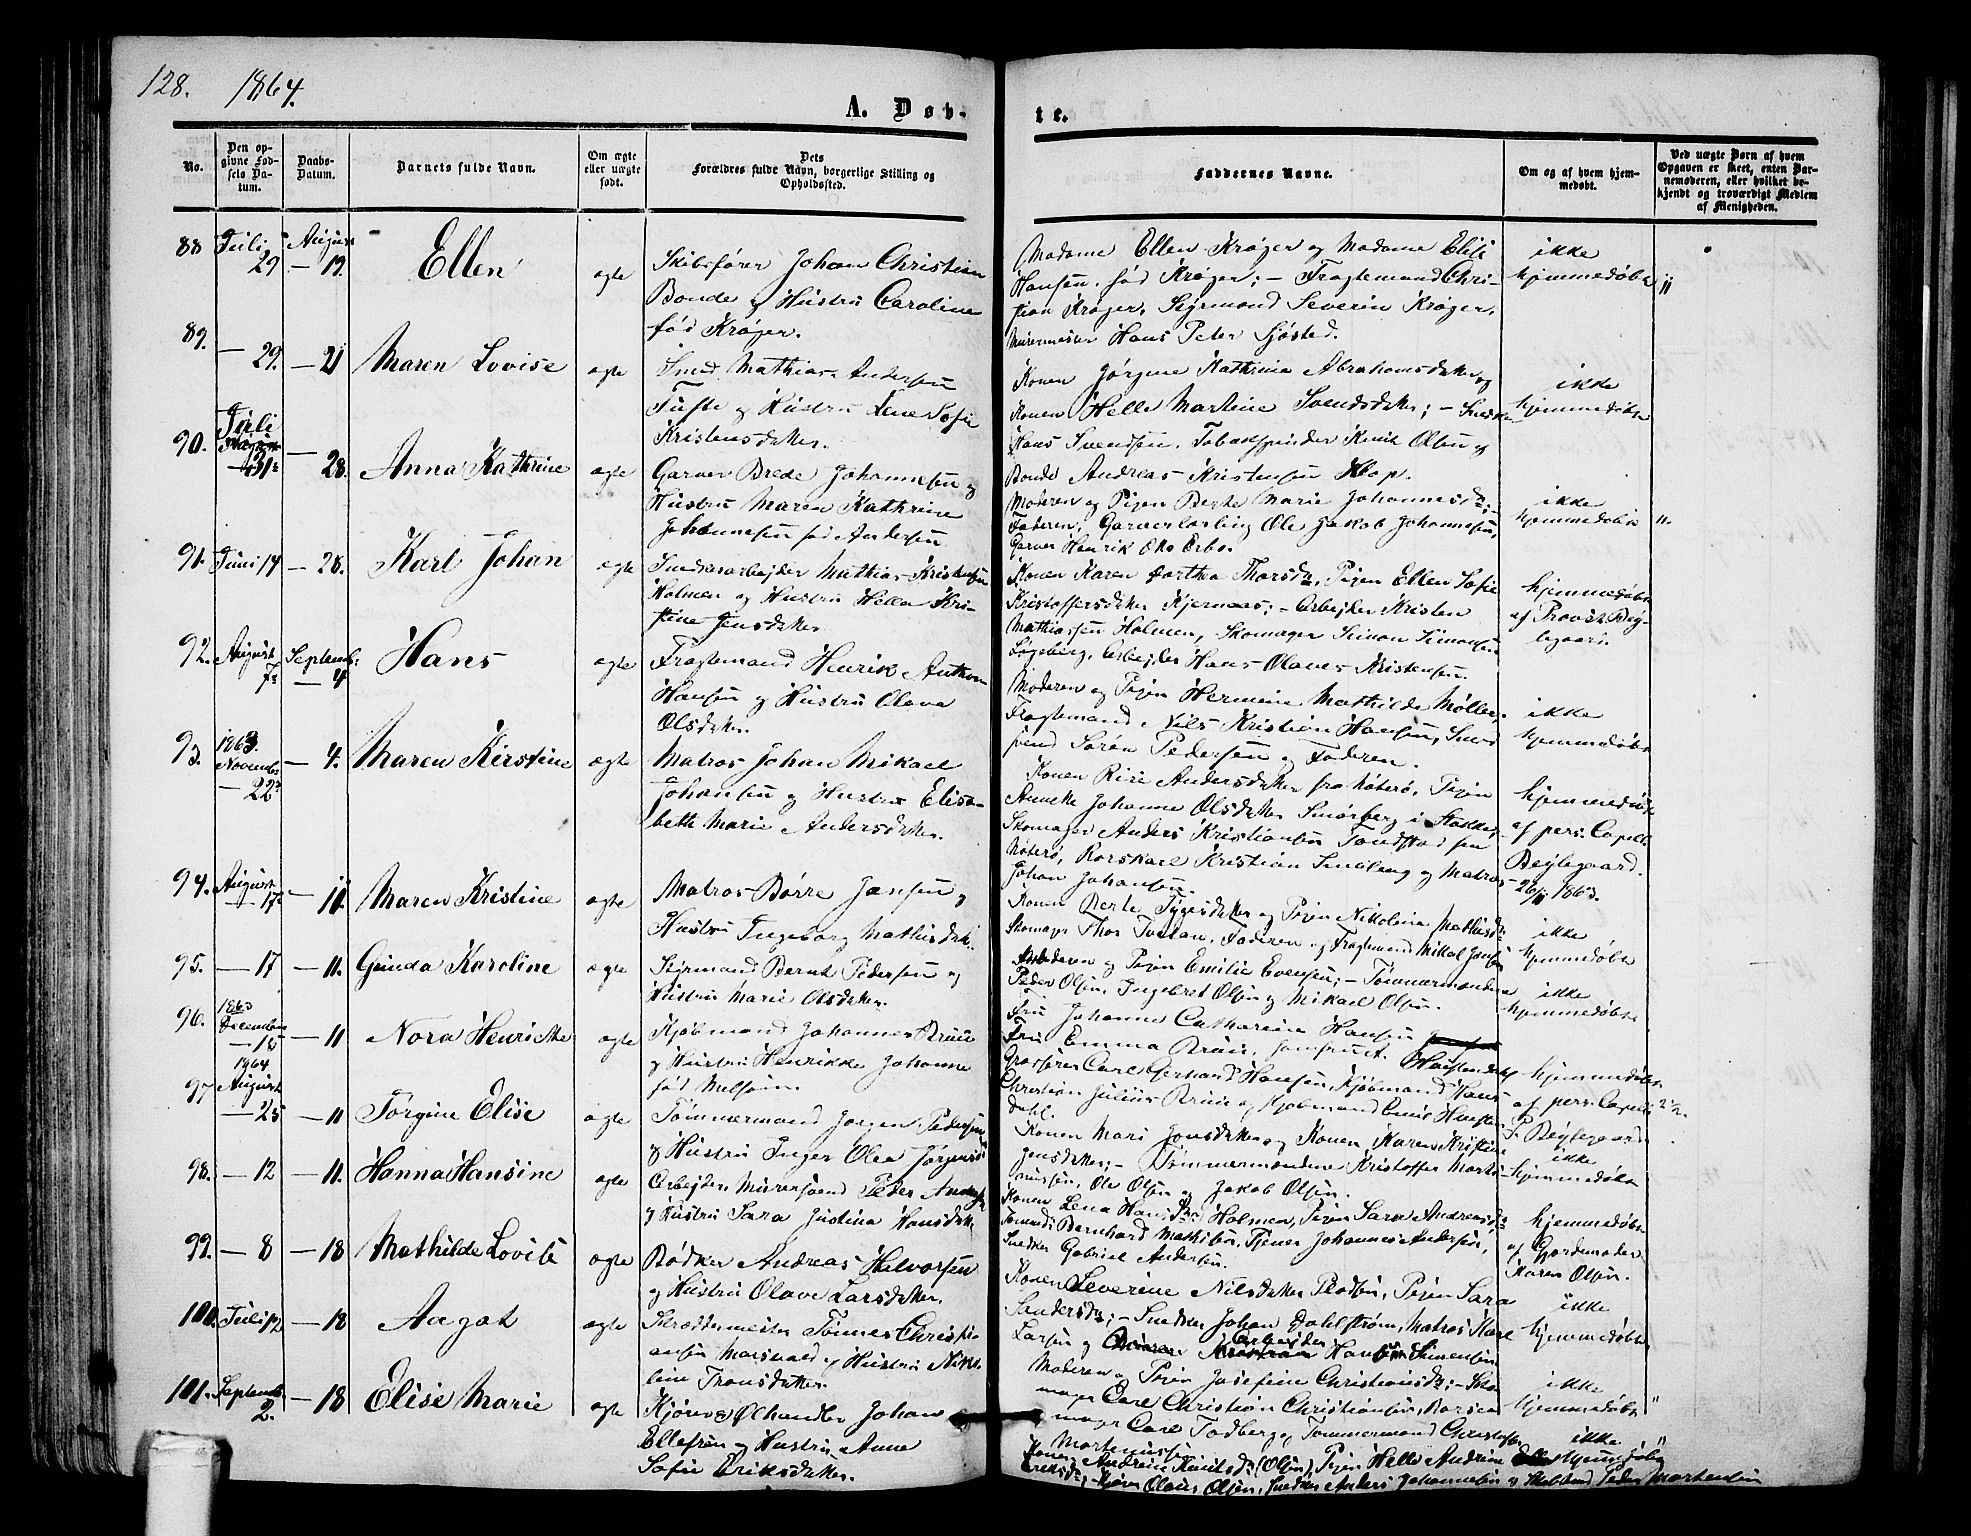 128. 1864.
A. Døv-
te.
No.
Den op-
givne Fød-
sels Da-
tum.
Daabs-
Datum.
Barnets fulde Navn.
Om ægte
eller uægte
født.
Dets
Forældres fulde Navn, borgerlige Stilling og
Opholdssted.
Faddernes Navne.
Om og af hvem hjem-
medøbt.
Ved uægte Børn af hvem
Opgaven er skeet, enten Bar-
nemoderen, eller hvilket be-
kjendt og troværdigt Medlem
af Menigheden.
88 Juli 29 August — 19. Ellen ægte
Skibsfører Johan Christian
Bonde og Hustru Caroline
fød Krøger.
Madame Ellen Krøger og Madame Elise
Hansen, fød Krøger; — Fragtemand Chri-
stian Krøger, Styrmand Severin Krøger,
Murermester Hans Peter Sjøsted.
ikke
hjemmedøbt "
89. — 29. — 21 Maren Lovise ægte
Smed Mathias Andersen
Tufte og Hustru Lene Sofie
Kristensdatter.
Konen Jørgine Kathrine Abrahamsdatter og
Konen Helle Martine Svendsdatter; — Snedker
Hans Svendsen, Tobakspinder Knut Olsen og
Bonde Andreas Kristensen Haap.
ikke
hjemmedøbt
90. Juli — 31te — 28. Anna Kathrine ægte
Garver Brede Johannesen og
Hustru Maren Kathrine
Johannesen fød Andersen
Moderen og Pigen Berte Marie Johannesdtr; —
Faderen, Garverlærling Ole Jakob Johannesen,
Garver Henrik Otto Erbo.
ikke
hjemmedøbt "
91. Juni 14 — 28. Karl Johan ægte
Mathias Kristensen
Holmen og Hustru Helle Kri-
stine Jensdatter
Konen Karen Dorthea Thorsdr, Pigen Ellen Sofie
Kristoffersdatter Kjernaas; — Arbejder Kristen
Mathiassen Holmen, Skomager Simon Simonsen
Løgeberg, Arbejder Hans Olaves Kristensen.
hjemmedøbt
af Provst Bej-
legaard.
92. August 7de Septemb. — 4. Hans ægte
Fragtemand Henrik Anthon
Hansen og Hustru Olava
Olsdatter.
Moderen og Pigen Hermine Mathilde Møller,
Fragtemand Nils Kristian Hansen, Sme-
svend Søren Pedersen og Faderen.
ikke
hjemmedøbt
93. 1863. Novemb. — 22de — 4. Maren Kirstine ægte
Matros Johan Mikael
Johansen og Hustru Elisa-
beth Marie Andersdatter.
Konen Siri Andersdatter fra Nøterø, Pigen
Anneke Johanne Olsdatter Smørberg i Stokke,
Skomager Anders Kristiansen
Nøterø, Rorskarl Kristian Smeberg og Matros
Johan Johansen.
hjemmedøbt
af pers. Capell.
Bejlegaard.
26/11 1863.
94. August — 17de — 11 Maren Kristine ægte
Matros Børre Jansen og
Hustru Ingeborg Mathisdatter.
Konen Berte Tygesdatter og Pigen Nikoline Mathisdr.
Skomager Thor Tostan, Faderen og Fragtemand Mikal Jonsen
ikke
hjemmedøbt
95. — 17 — 11. Gunda Karoline ægte
Styrmand Bernt Pedersen og
Hustru Marie Olsdatter.
Moderen og Pigen Emilie Evensen; — Tømmermændene
Peder Olsen, Ingebret Olsen og Mikael Olsen.
ikke
hjemmedøbt
96. 1863 December — 15 — 11 Nora Henriette ægte
Kjøbmand Johannes Bruun
og Hustru Henrikke Johanne
fød Melsom.
Fru Johanne Catharine Hansen
Fru Emma Bruun, Jomfru
Grosserer Carl Gerhard Hansen, Kjøbmand Hans
Christian Julius Bruun og Kjøbmand Emil Haugen-
dahl.
hjemmedøbt
af pers. Capell.
F. Bejlegaard
97 1864 August — 25 — 11 Jørgine Elise ægte
Tømmermand Jørgen Pedersen
og Hustru Inger Olea Jørgensdr
Konen Mari Jonsdatter og Konen Karen Kristine
Jensdatter; — Tømmermændene Kristoffer Marti-
niussen, Ole Olsen og Jakob Olsen.
ikke
hjemmedøbt
98. — 12 — 11. Hanna Hansine ægte
Arbejder, Murersvend Peder Andersen
og Hustru Sara Justina Hansdatter
Konen Lena Hansdtr Holmen, Pigen Sara Andreasdr
Bernhard Mathisen, Tjener Johannes Andersen,
Snedker Gabriel Andersen.
hjemmedøbt
af Gjordemoder
Karen Olsen.
99. — 8 — 18 Mathilde Lovise ægte
Bødker Andreas Halvorsen
og Hustru Olave Larsdatter.
Konen Severine Nilsdatter Pladsen, Pigen Sara
Sandersdr; — Snedker Johan Dahlstrøm, Matros Karl
Larsen og Arbejder Hans Simensen
ikke
hjemmedøbt
100. Juli 12 — 18 Aagot ægte
Skreddermester Tønnes Christi-
ansen Marsvald og Hustru Niko-
line Tronsdatter.
Moderen og Pigen Josefine Christiansdr; — Sko-
mager Carl Christian Christiansen,
mager Carl Fodberg, Tømmermand Christoffer
Martinussen
ikke
hjemmedøbt "
101. Septemb. 2. — 18 Elise Marie ægte
Kjører Ølhandler Johan
Ellefsen og Hustru Anne
Sofie Eriksdatter.
Konen Andrine Knudsdr (Olsen), Pigen Helle Andrine
Eriksdr; — Kjører Olaus Olsen, Snedker Anders Johannesen og Peder Mortensen
ikke
hjemmedøbt "